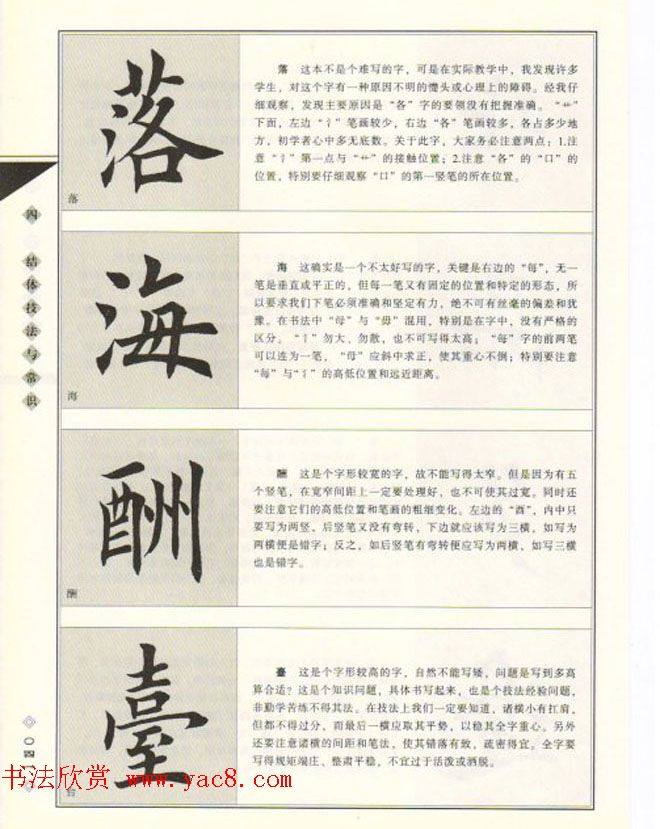 落
落
落 这本不是个难写的字，可是在实际教学中，我发现许多
学生，对这个字有一种原因不明的憷头或心理上的障碍。经我仔
细观察，发现主要原因是“各”字的要领没有把握准确。“艹”
下面，左边“氵”笔画较少，右边“各”笔画较多，各占多少地
方，初学者心中多无底数。关于此字，大家务必注意两点：1.注
意“氵”第一点与“艹”的接触位置；2.注意“各”的“口”的
位置，特别要仔细观察“口”的第一竖笔的所在位置。
四 结体技法与常识
海
海
海 这确实是一个不太好写的字，关键是右边的“每”，无一
笔是垂直或平正的，但每一笔又有固定的位置和特定的形态，所
以要求我们下笔必须准确和坚定有力，绝不可有丝毫的偏差和犹
豫。在书法中“母”与“毋”混用，特别是在字中，没有严格的
区分。“氵”勿大、勿散，也不可写得太高；“每”字的前两笔
可以连为一笔，“母”应斜中求正，使其重心不倒；特别要注意
“每”与“氵”的高低位置和远近距离。
酬
酬
酬 这是个字形较宽的字，故不能写得太窄。但是因为有五
个竖笔，在宽窄间距上一定要处理好，也不可使其过宽。同时还
要注意它们的高低位置和笔画的粗细变化。左边的“酉”，内中只
要写为两竖，后竖笔又没有弯转，下边就应该写为三横，如写为
两横便是错字；反之，如后竖笔有弯转便应写为两横，如写三横
也是错字。
臺
台
臺 这是个字形较高的字，自然不能写矮，问题是写到多高
算合适？这是个知识问题，具体书写起来，也是个技法经验问题，
非勤学苦练不得其法。在技法上我们一定要知道，诸横小有扛肩，
但都不得过分，而最后一横应取其平势，以稳其全字重心。另外
还要注意诸横的间距和笔法，使其错落有致，疏密得宜。全字要
写得规矩端庄、整肃平稳，不宜过于活泼或洒脱。
〇四一
书法欣赏 www.yac8.com